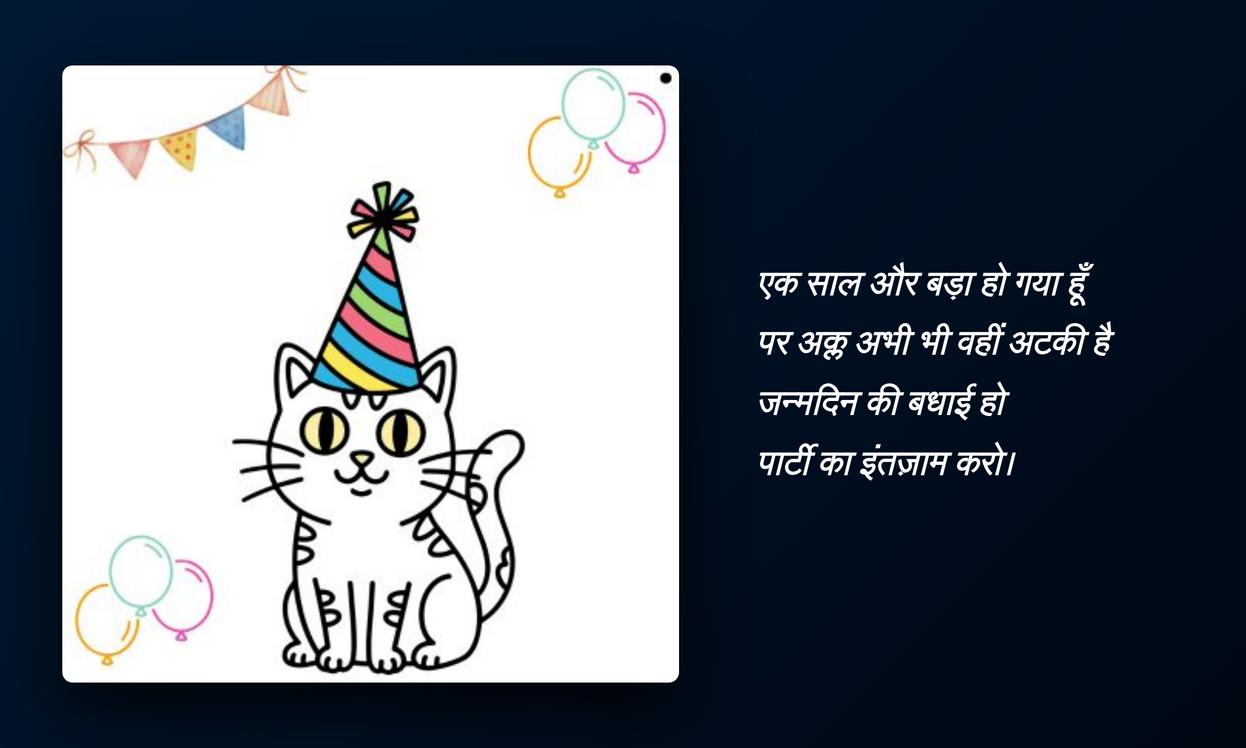 एक साल और बड़ा हो गया हूँ
पर अक्ल अभी भी वहीं अटकी है
जन्मदिन की बधाई हो
पार्टी का इंतज़ाम करो।